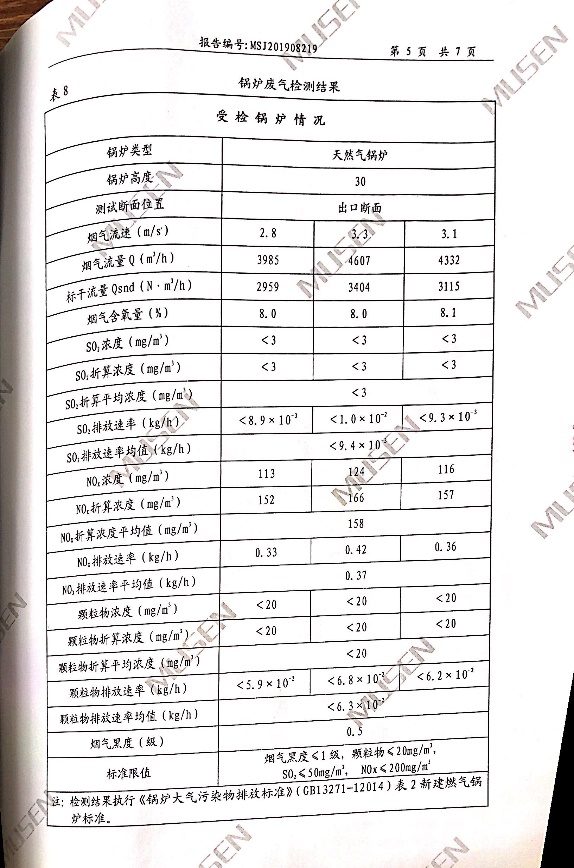 报告编号:MSJ201908219 第 5 页 共 7 页
表 8 锅炉废气检测结果
受 检 锅 炉 情 况
锅炉类型 天然气锅炉
锅炉高度 30
测试断面位置 出口断面
烟气流速(m/s) 2.8 3.3 3.1
烟气流量 Q(m³/h) 3985 4607 4332
标干流量 Qsnd(N·m³/h) 2959 3404 3115
烟气含氧量(%) 8.0 8.0 8.1
SO₂浓度(mg/m³) <3 <3 <3
SO₂折算浓度(mg/m³) <3 <3 <3
SO₂折算平均浓度(mg/m³) <3
SO₂排放速率(kg/h) <8.9×10⁻³ <1.0×10⁻² <9.3×10⁻³
SO₂排放速率均值(kg/h) <9.4×10⁻³
NOₓ浓度(mg/m³) 113 124 116
NOₓ折算浓度(mg/m³) 152 166 157
NOₓ折算浓度平均值(mg/m³) 158
NOₓ排放速率(kg/h) 0.33 0.42 0.36
NOₓ排放速率平均值(kg/h) 0.37
颗粒物浓度(mg/m³) <20 <20 <20
颗粒物折算浓度(mg/m³) <20 <20 <20
颗粒物折算平均浓度(mg/m³) <20
颗粒物排放速率(kg/h) <5.9×10⁻² <6.8×10⁻² <6.2×10⁻²
颗粒物排放速率均值(kg/h) <6.3×10⁻²
烟气黑度(级) 0.5
标准限值 烟气黑度≤1 级, 颗粒物≤20mg/m³,
SO₂≤50mg/m³, NOx≤200mg/m³
注: 检测结果执行《锅炉大气污染物排放标准》(GB13271-12014)表 2 新建燃气锅
炉标准。
MUSEN